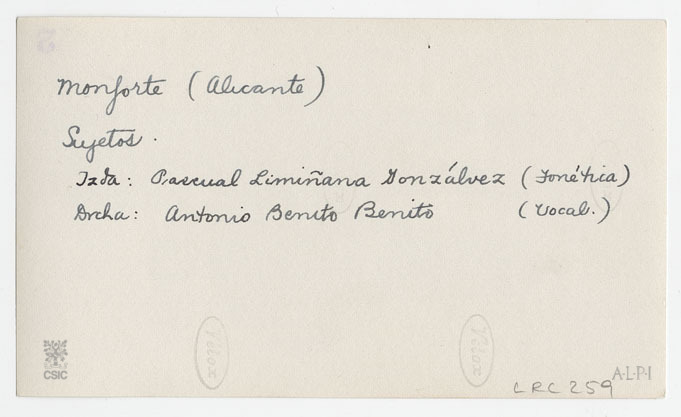 Monforte (Alicante)
Sujetos.
Izda: Pascual Limiñana Gonzálvez (Fonética)
Drcha: Antonio Benito Benito (Vocab.)
Velox Velox
CSIC
A·L·P·I
LRC 259